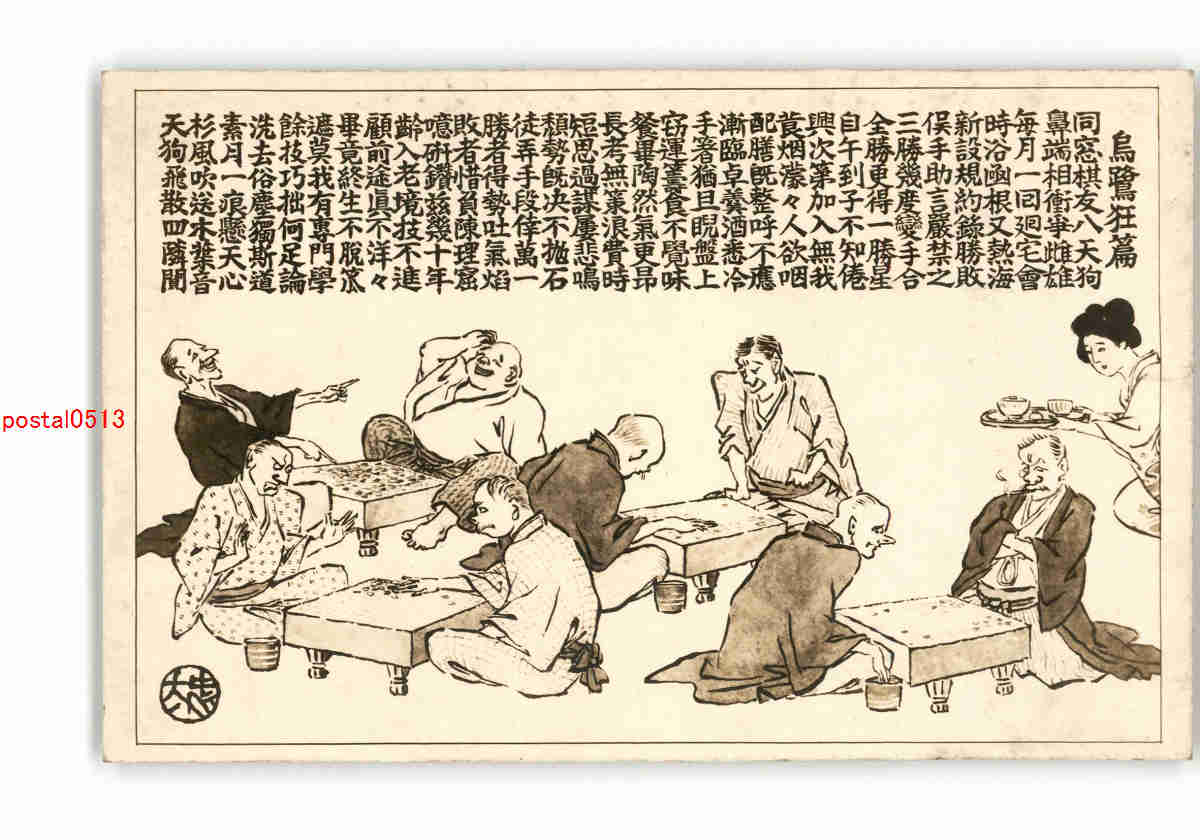 烏鷺狂篇
同窓棋友八天狗
鼻端相衝爭雌雄
每月一回廻宅會
時浴凾根又熱海
新設規約錄勝敗
俣手助言嚴禁之
三勝幾度變手合
全勝更得一勝星
自午到子不知倦
興次第加入無我
莨烟濛々人欲咽
配膳旣整呼不應
漸臨卓羹酒悉冷
手箸猶且睨盤上
窃運羹食不覺味
餐畢陶然氣更昂
長考無策浪費時
短思過謀屢悲鳴
頽勢旣决不抛石
徒弄手段倖萬一
勝者得勢吐氣焰
敗者惜負陳理窟
噫硏鑽玆幾十年
齡入老境技不進
顧前途眞不洋々
畢竟終生不脫笊
遮莫我有專門學
餘技巧拙何足論
洗去俗塵獨斯道
素月一痕懸天心
杉風吹送末聲音
天狗飛散四隣聞
postal0513